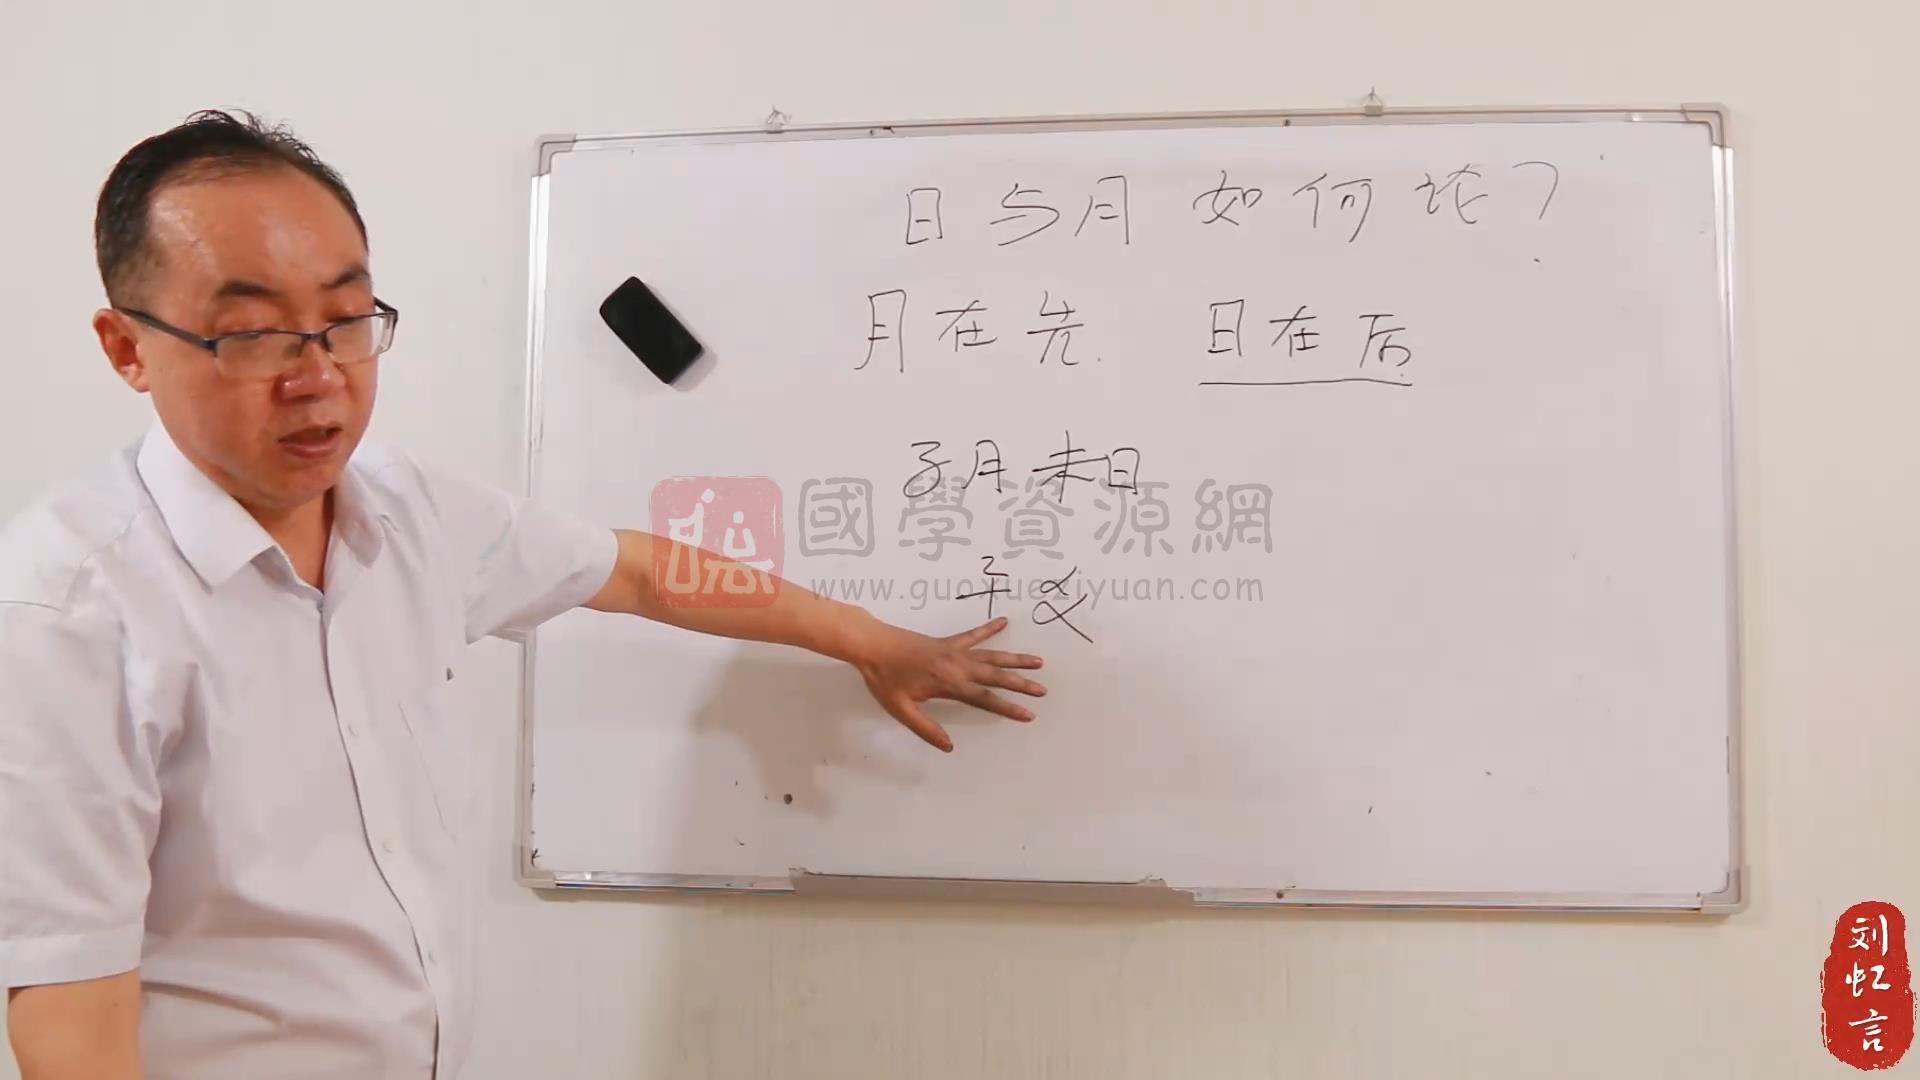 日与月如何论？
月在先. 日在后.
子月未日
國學資源網
www.guoxueziyuan.com
子爻
刘虹言